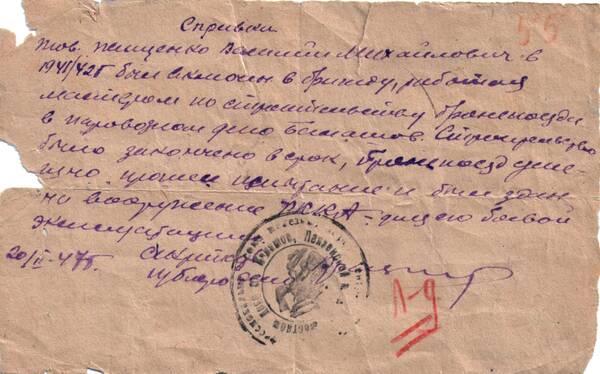 Справка
55
тов. Ищенко Василий Михайлович в
1941/42г был включен в бригаду, работая
мастером по строительству бронепоезда
в паровозном депо Балашов. Строительство
было закончено в срок, бронепоезд успе-
шно прошел испытание и был сдан
на вооружение РККА - для боевой
эксплуатации
20/II-47г.
Л-д